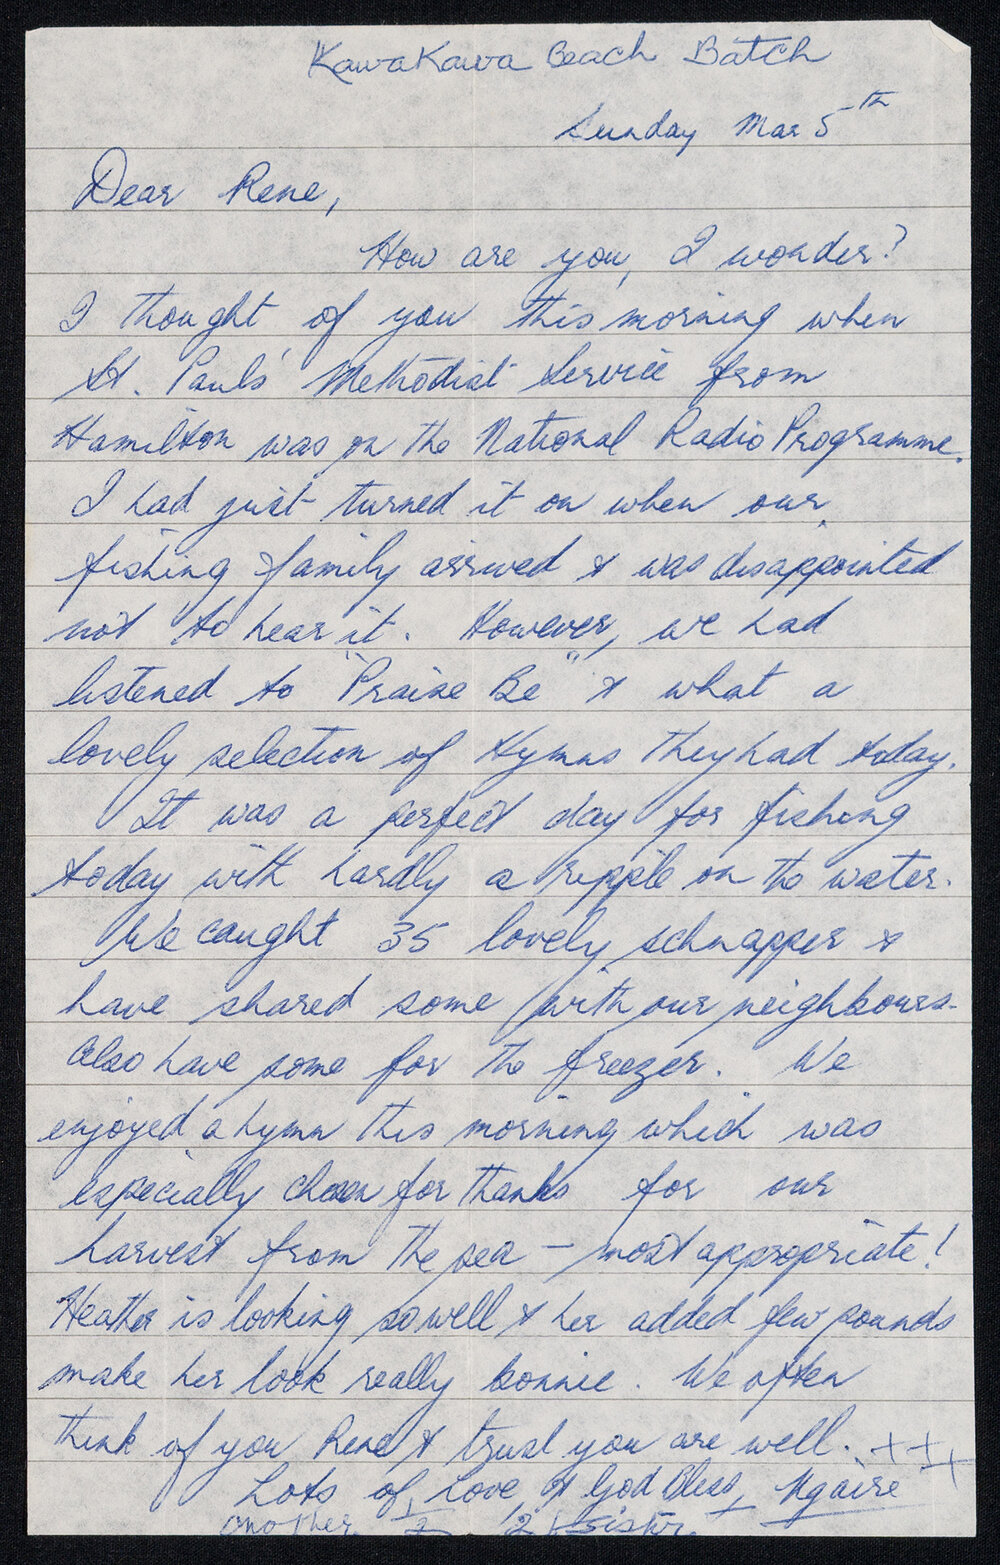 KawaKawa Beach Batch
Sunday Mar 5th
Dear Rene,
How are you, I wonder?
I thought of you this morning when
St. Pauls' Methodist Service from
Hamilton was on the National Radio Programme.
I had just turned it on when our
fishing family arrived & was disappointed
not to hear it. However, we had
listened to "Praise Be" & what a
lovely selection of Hymns they had today.
It was a perfect day for fishing
today with hardly a ripple on the water.
We caught 35 lovely schnapper &
have shared some with our neighbours-
also have some for the freezer. We
enjoyed a hymn this morning which was
especially chosen for thanks for our
harvest from the sea – most appropriate!
Heather is looking so well & her added few pounds
make her look really bonnie. We often
think of you Rene & trust you are well. ++++
Lots of Love, & God Bless, Ngaire
another sister.